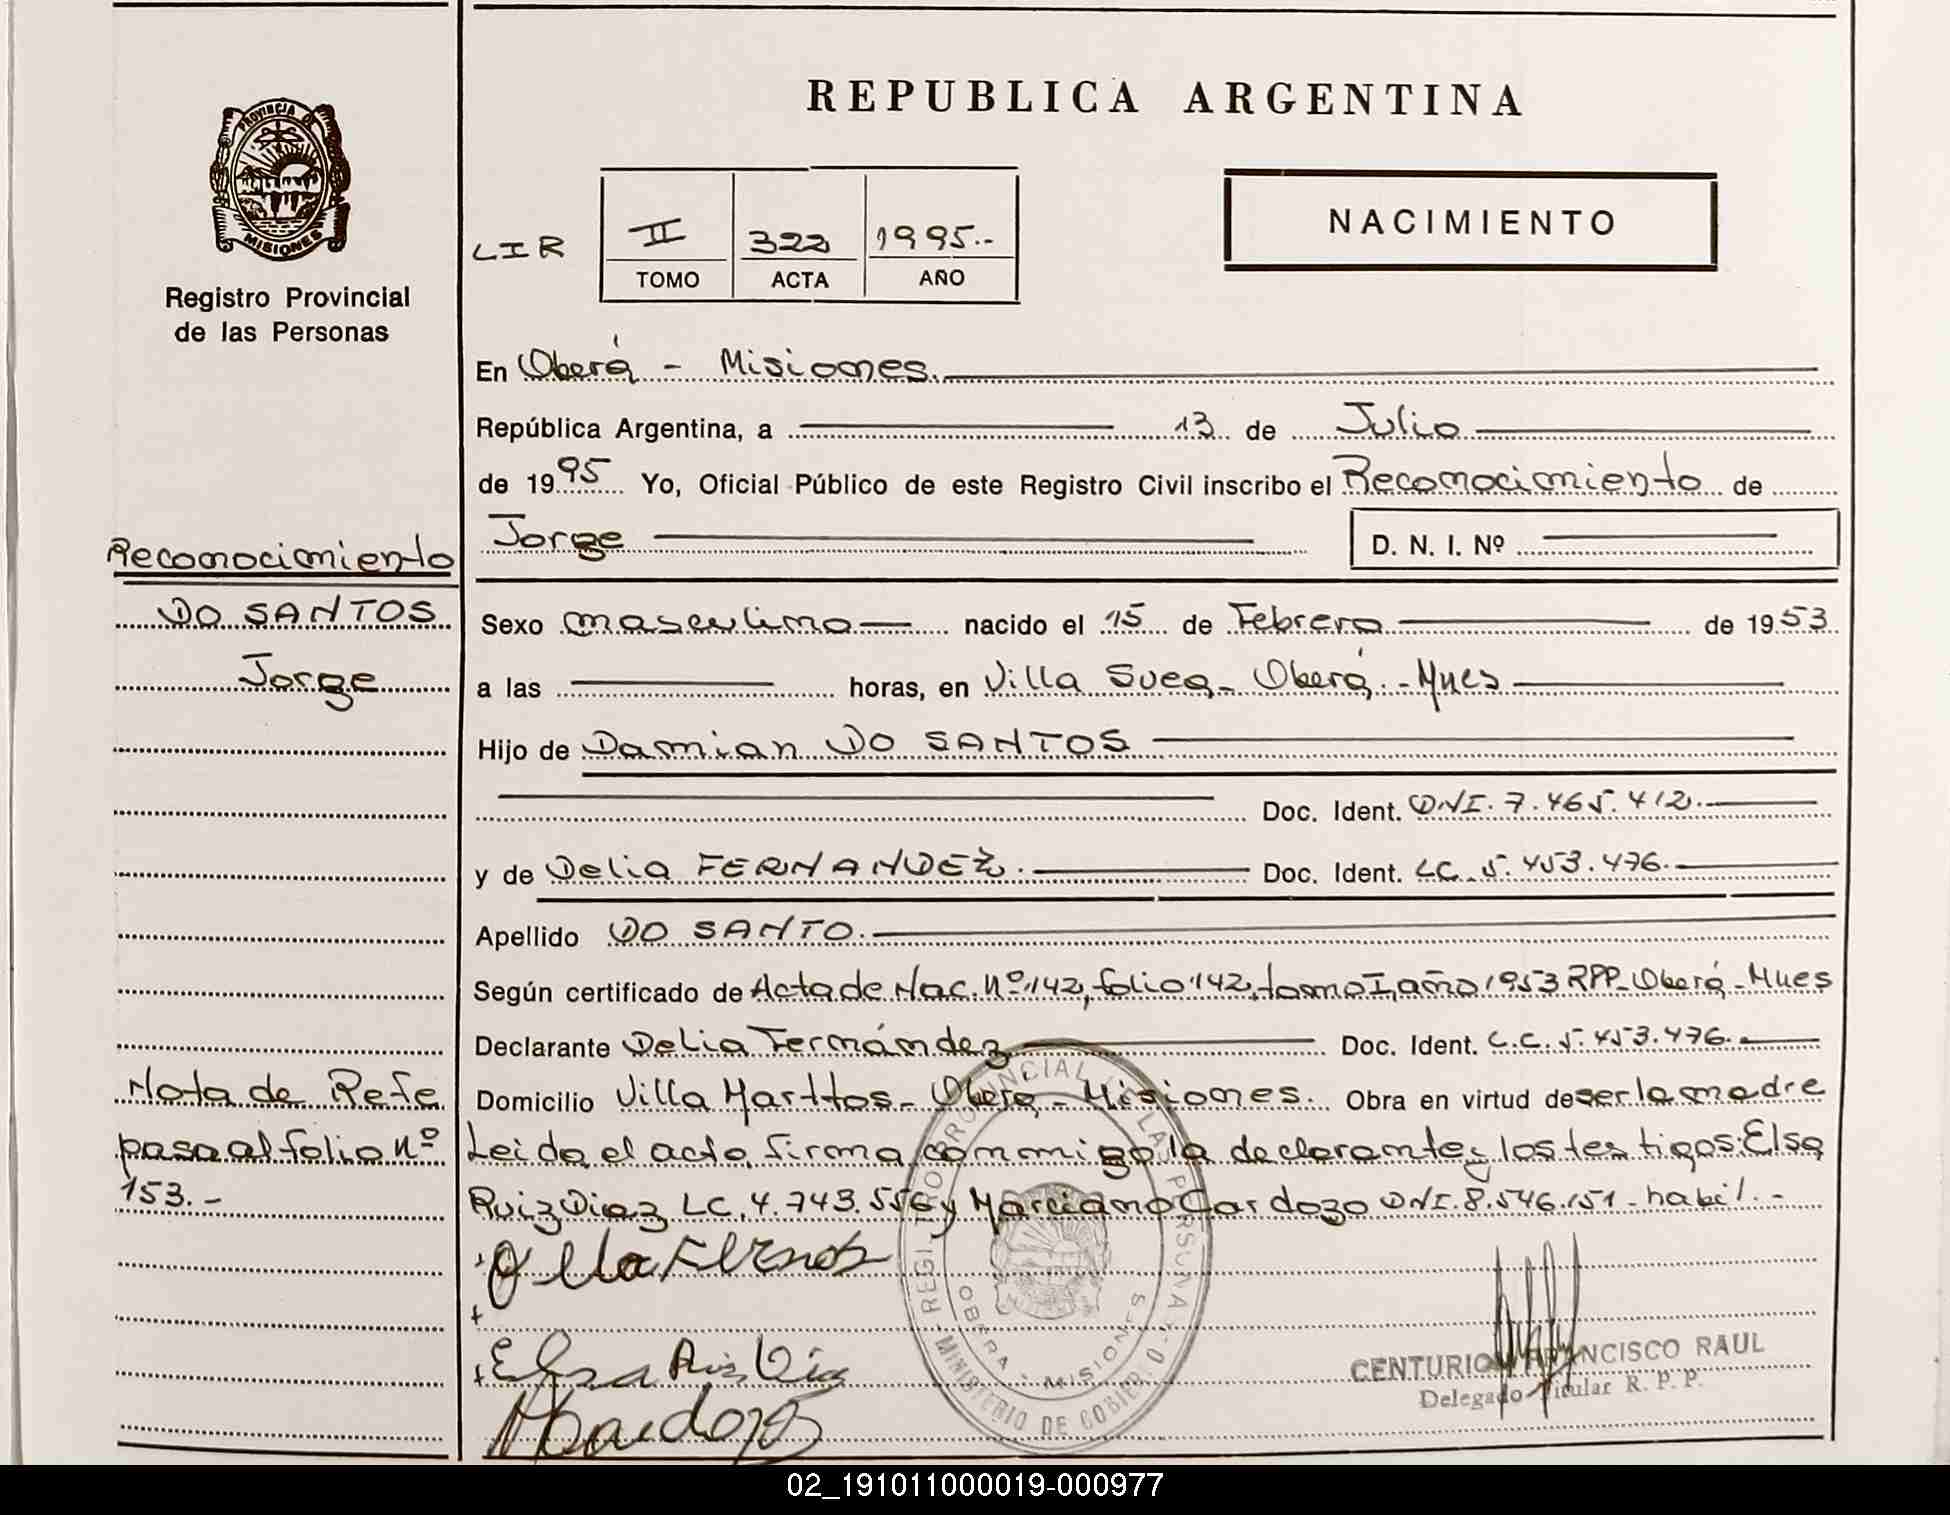 REPUBLICA ARGENTINA
PROVINCIA DE
MISIONES
Registro Provincial
de las Personas
LIR
II 322 1995.-
TOMO ACTA AÑO
NACIMIENTO
En Oberá - Misiones.
República Argentina, a 13 de Julio
de 1995 Yo, Oficial Público de este Registro Civil inscribo el Reconocimiento de
Jorge D. N. I. Nº
Reconocimiento
DO SANTOS
Jorge
Sexo masculino nacido el 15 de Febrero de 1953
a las horas, en Villa Svea - Oberá - Mnes
Hijo de Damian DO SANTOS
Doc. Ident. DNI. 7.465.412.
y de Delia FERNANDEZ. Doc. Ident. LC. 5.453.476.
Apellido DO SANTO.
Según certificado de Acta de Nac. Nº 142, folio 142, tomo I, año 1953 RPP - Oberá - Mnes
Declarante Delia Fernández Doc. Ident. L.C. 5.453.476.
Domicilio Villa Marttos - Oberá - Misiones. Obra en virtud de ser la madre
Leido el acto, firma conmigo la declarante y los testigos: Elsa
Ruiz Diaz LC. 4.743.556 y Marciano Cardozo DNI. 8.546.151 - habil. -
Nota de Refe
pasa al folio nº
153. -
Elsa Ruiz Diaz
REGISTRO PROVINCIAL DE LAS PERSONAS
MINISTERIO DE GOBIERNO
OBERA - MISIONES
CENTURION FRANCISCO RAUL
Delegado Titular R. P. P.
02_191011000019-000977